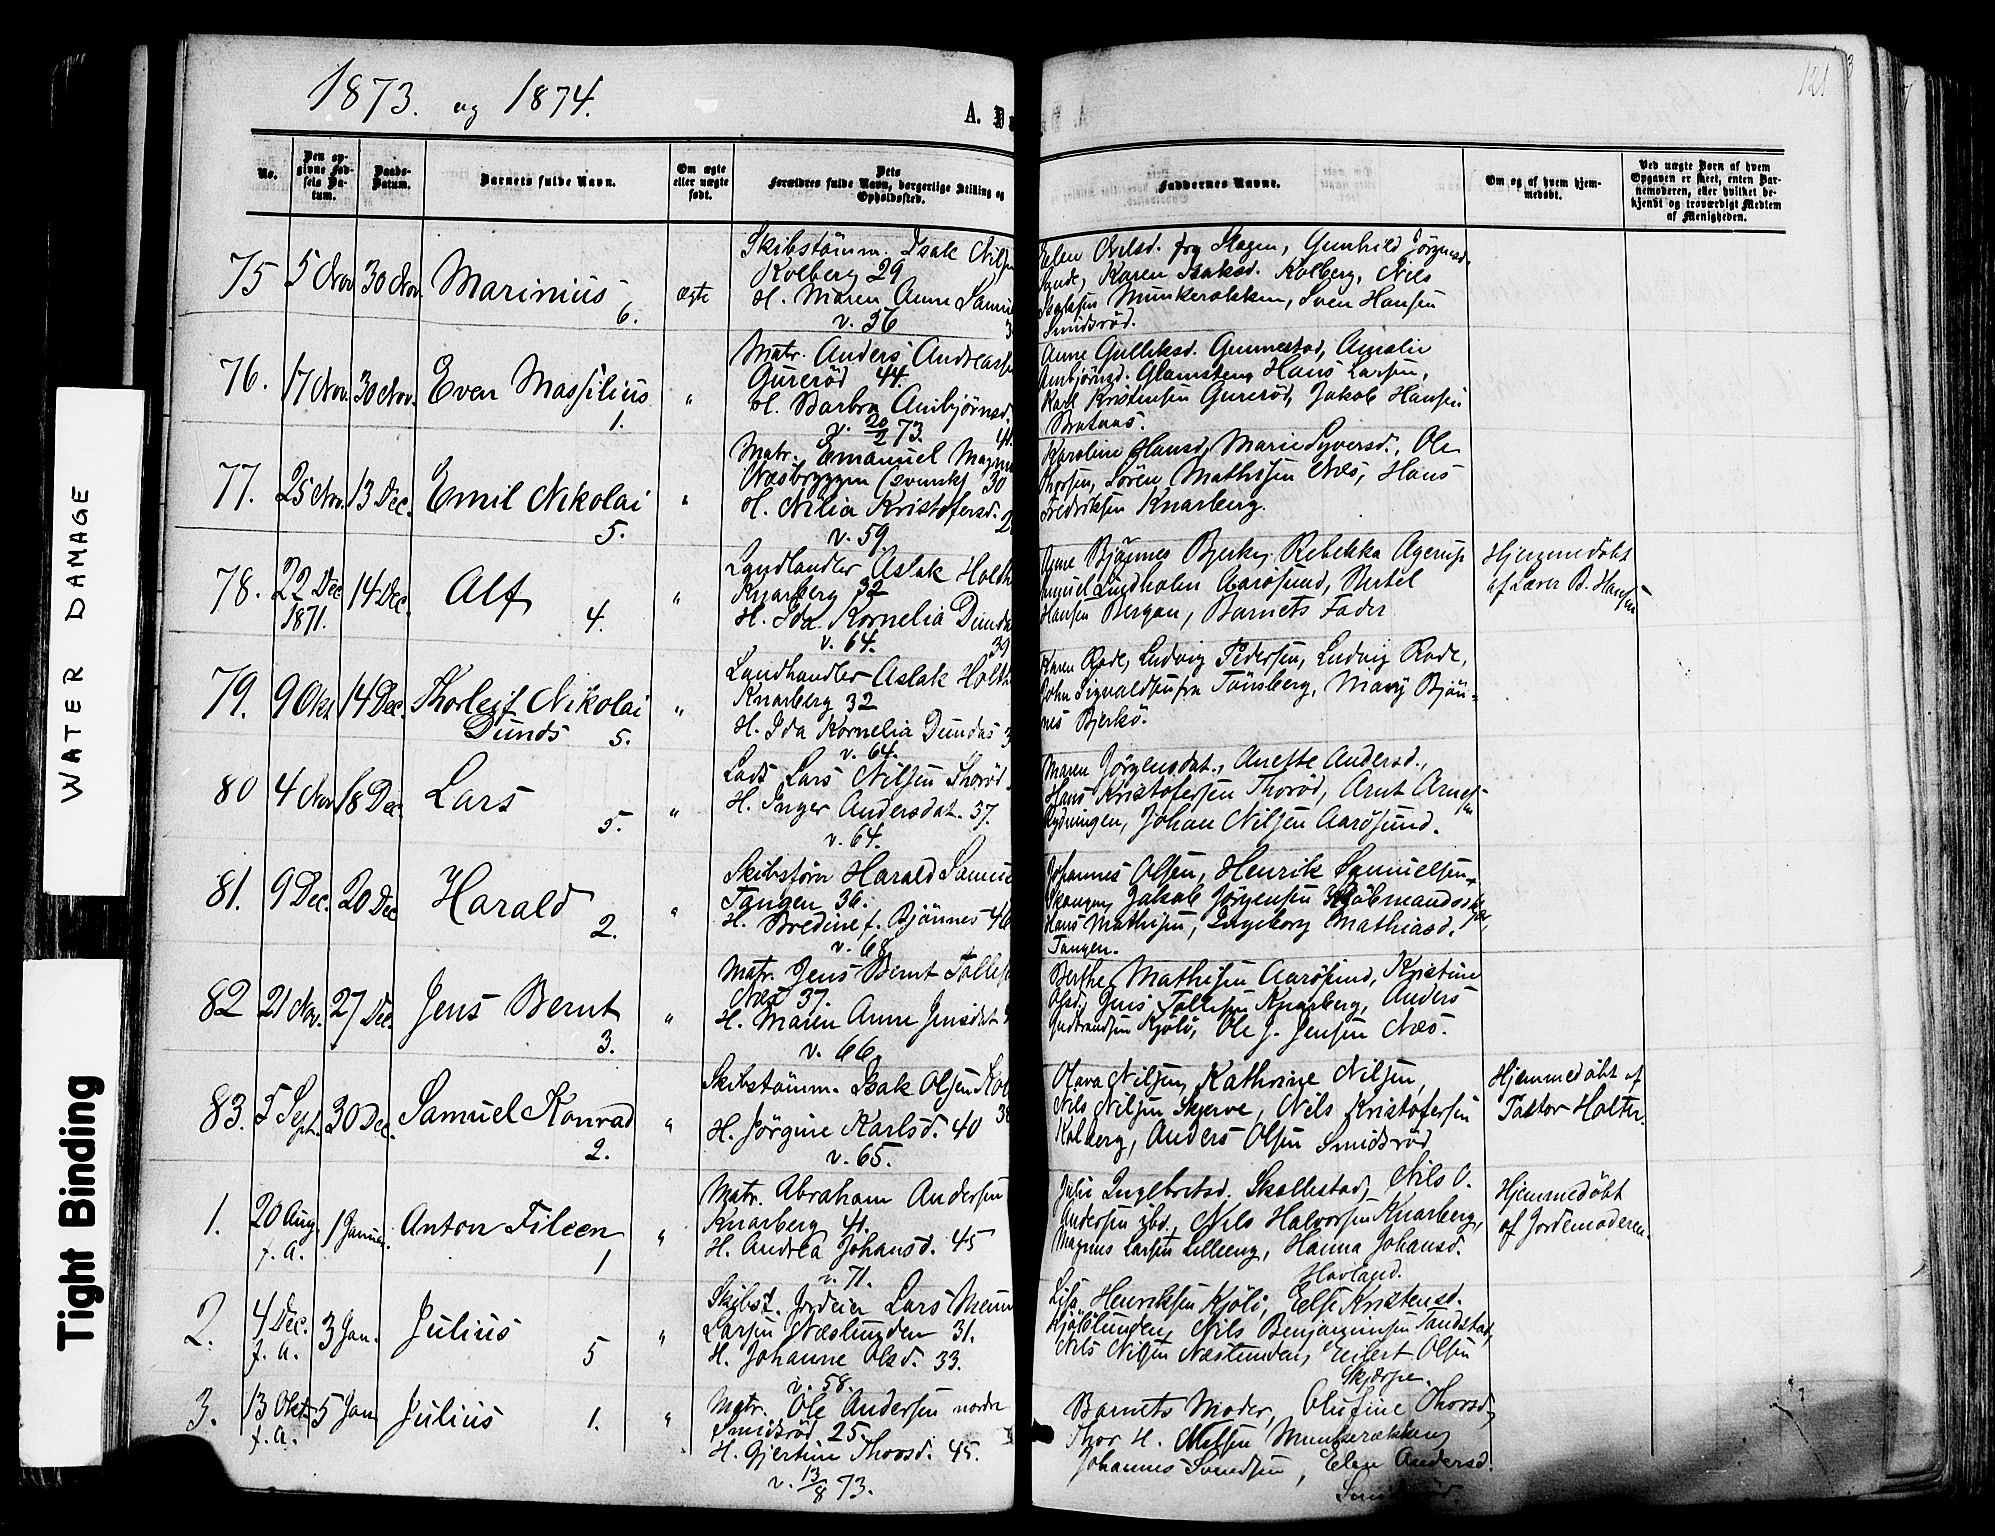 1873. og 1874.
A. D
121
No.
Den opgivne Fødsels Datum.
Daabs-Datum.
Barnets fulde Navn.
Om ægte eller uægte født.
Dets Forældres fulde Navn, borgerlige Stilling og Opholdssted.
Faddernes Navne.
Om og af hvem hjemmedøbt.
Ved uægte Børn af hvem Opgaven er skeet, enten Barnemoderen, eller hvilket bekjendt og troværdigt Medlem af Menigheden.
75 5 Nov 30 Nov. Marinius 6. ægte
Skibstömm. Isak Nilsen
Kolberg 29
H. Maren Anne Samu
v. 36
Elen fra Skagen, Gunhild Jörgensd.
Karen Isaksd. Kolberg, Nils
Isaksen Munkerækken, Sven Hansen
Smidsröd.
76. 17 Nov. 30 Nov. Even Massilius 1. "
Matr. Anders Andreass
Gureröd 44.
H. Barbra Anbjörnsd.
v. 20/2 73.
Anne Gulliksd. Gunnestad, Amalie
Anbjörnsd. Glamstein, Hans Larsen,
Karl Kristensen Gureröd, Jakob Hansen
Brataas.
77. 25 Nov. 13 Dec. Emil Nikolai 5. "
Matr. Emanuel Magnu
Næsbryggen (svensk) 30
H. Nilia Kristofersd. 2
v. 59.
Karoline Hansd., Marie Syversd., Ole
Thorsen, Sören Mathisen Næs, Hans
Fredriksen Knarberg.
78. 22 Dec. 1871. 14 Dec. Alf 4. "
Landhandler Aslak Holth
Knarberg 32
H. Ida Kornelia Dunda
v. 64. 39
Anne Bjönnes Bjerkö, Rebekka Agerup
Samuel Lindholm Aarösund, Bertel
Hansen Bergan, Barnets Fader
Hjemmedöbt
af Lærer B. Hansen
79. 9 Okt. 14 Dec. Thorleif Nikolai
Dunds 5. "
Landhandler Aslak Holth
Knarberg 32
H. Ida Kornelia Dundas 3
v. 64.
Karen Rode, Ludvig Pedersen, Ludvig Rode,
John Sigvaldsen fra Tönsberg, Mary Bjön-
nes Bjerkö.
80 4 Nov. 18 Dec. Lars 5. "
Lods Lars Nilsen Thoröd
H. Inger Andersdat. 37.
v. 64.
Maren Jörgensdat., Anette Andersd.,
Hans Kristofersen Thoröd, Arnt Arnt-
sen Rydningen, Johan Nilsen Aarösund.
81. 9 Dec. 20 Dec Harald 2. "
Skibsförer Harald Samue
Tangen 36.
H. Bredine f. Bjönnes 46
v. 68.
Johannes Olsen, Henrik Samuelsen
Jakob Jörgensen Kjöbmandskjær,
Hans Mathisen, Ingeborg Mathiasd.
Tangen.
82 21 Nov. 27 Dec. Jens Bernt 3. "
Matr. Jens Bernt Tollefs
Næs 37.
H. Maren Anne Jensdat
v. 66.
Berthe Mathisen Aarösund, Kristine
Olsd., Jens Tollefsen Knarberg, Anders
Gudbrandsen Kjölö, Ole J. Jensen Næs.
83. 5 Sept. 30 Dec. Samuel Konrad 2. "
Skibstömm. Isak Olsen Kol
38
H. Jörgine Karlsd. 40
v. 65.
Olava Nilsen, Kathrine Nilsen,
Nils Nilsen Skjerve, Nils Kristofersen
Kolberg, Anders Olsen Smidsröd
Hjemmedöbt af
Pastor Holter.
1. 20 Aug. f. A. 1 Januar. Anton Fileen 1 "
Matr. Abraham Andersen
Knarberg 41.
H. Andrea Johansd. 45
v. 71.
Julie Inglbretsd. Skallestad, Nils O.
Andersen ibd., Nils Halvorsen Knarberg,
Magnus Larsen Lilleeng, Hanna Johansd.
Havland.
Hjemmedöbt
af Jordemoderen.
2. 4 Dec. f. A. 3 Jan. Julius 5 "
Skibst. Jordeier Lars
Larsen Næslunden 31.
H. Johanne Olsd. 33.
v. 58.
Lisa Henriksen Kjölö, Else Kristensd.
Kjölölunden, Nils Benjaminsen Sandstad,
Nils Nilsen Næslunden, Eilert Olsen
Skjærpe.
3. 13 Okt. f. A. 5 Jan Julius 1. "
Matr. Ole Andersen nordre
Smidsröd 25.
H. Gjertine Thorsd. 45.
v. 13/8 73.
Barnets Moder, Olufine Thorsd.,
Thor H. Nilsen Munkerækken,
Johannes Svendsen, Elen Andersd.
WATER DAMAGE
Tight Binding